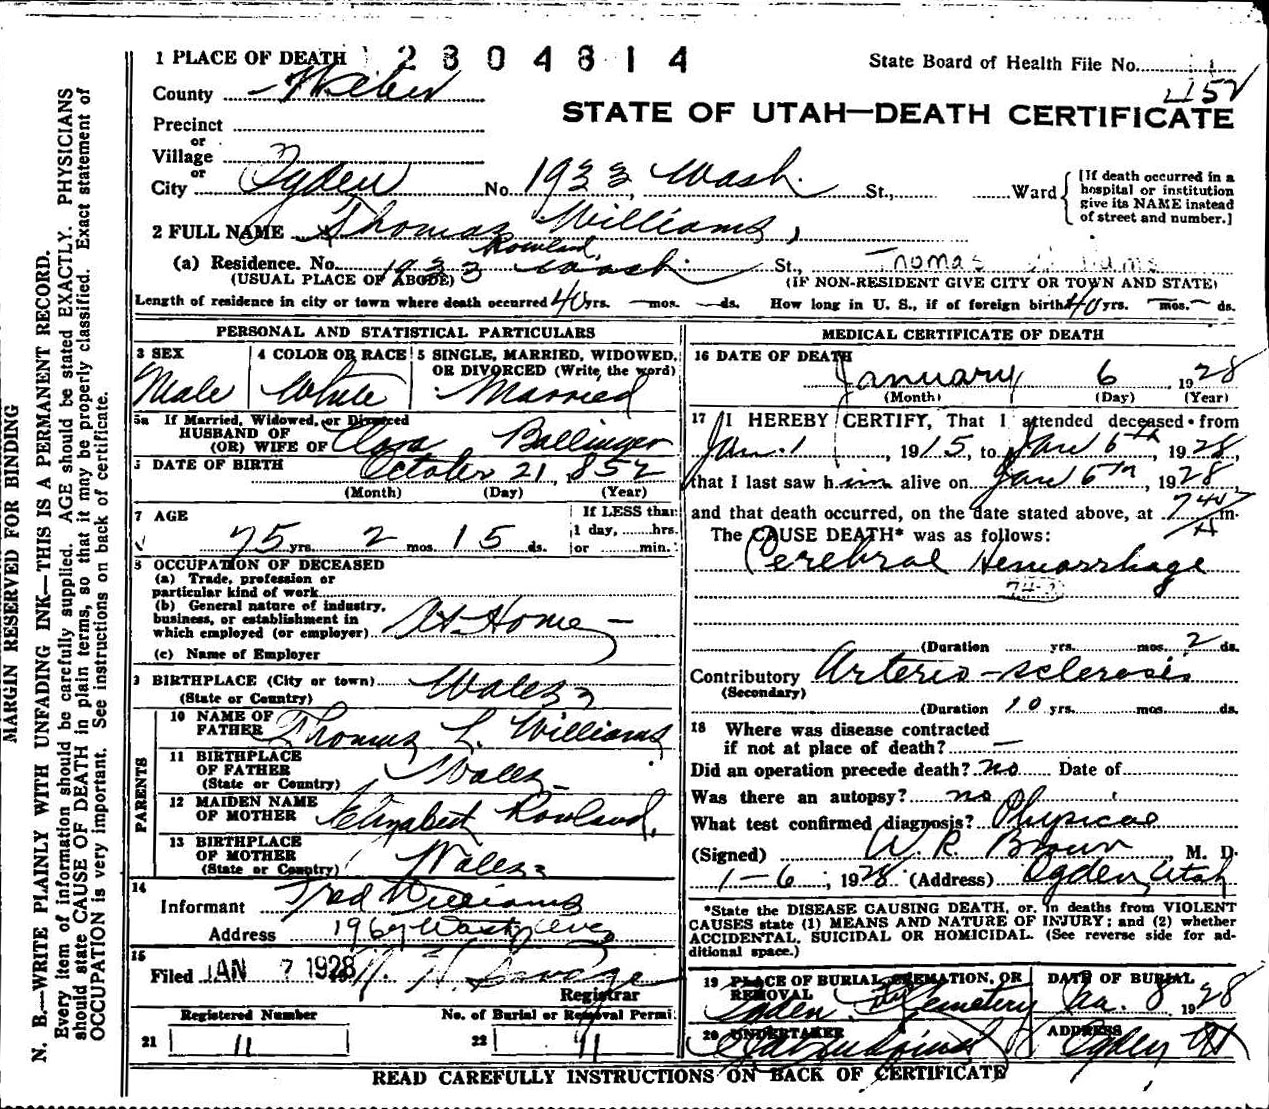 1 PLACE OF DEATH 2304814
State Board of Health File No.
County Weber
4152
STATE OF UTAH—DEATH CERTIFICATE
Precinct
or
Village
or
City Ogden No. 1933 Wash. St., Ward
[If death occurred in a hospital or institution give its NAME instead of street and number.]
2 FULL NAME Thomas Williams,
Rowland
(a) Residence. No. 1933 Wash St.,
(USUAL PLACE OF ABODE) (IF NON-RESIDENT GIVE CITY OR TOWN AND STATE)
Length of residence in city or town where death occurred 40 yrs. — mos. — ds. How long in U. S., if of foreign birth? 40 yrs. — mos. — ds.
PERSONAL AND STATISTICAL PARTICULARS
3 SEX 4 COLOR OR RACE 5 SINGLE, MARRIED, WIDOWED,
OR DIVORCED (Write the word)
Male White Married
5a If Married, Widowed, or Divorced
HUSBAND OF
(OR) WIFE OF Clara Ballinger
DATE OF BIRTH October 21, 1852
(Month) (Day) (Year)
7 AGE If LESS than
1 day, hrs.
75 yrs. 2 mos. 15 ds. or min.
8 OCCUPATION OF DECEASED
(a) Trade, profession or
particular kind of work
(b) General nature of industry,
business, or establishment in
which employed (or employer) At Home —
(c) Name of Employer
9 BIRTHPLACE (City or town) Wales
(State or Country)
PARENTS
10 NAME OF
FATHER Thomas L. Williams
11 BIRTHPLACE
OF FATHER Wales
(State or Country)
12 MAIDEN NAME
OF MOTHER Elizabeth Rowland,
13 BIRTHPLACE
OF MOTHER Wales
(State or Country)
14
Informant Fred Williams
Address 1967 Wash Ave
15
Filed JAN 7 1928
Registrar
Registered Number No. of Burial or Removal Permit
21 11 22 11
MEDICAL CERTIFICATE OF DEATH
16 DATE OF DEATH
January 6, 1928
(Month) (Day) (Year)
17 I HEREBY CERTIFY, That I attended deceased from
Jan. 1, 1915, to Jan 6th, 1928,
that I last saw him alive on Jan 6th, 1928,
and that death occurred, on the date stated above, at m.
The CAUSE DEATH* was as follows:
Cerebral Hemorrhage
(Duration yrs. mos. 2 ds.
Contributory Arterio-sclerosis
(Secondary)
(Duration 10 yrs. mos. ds.
18 Where was disease contracted
if not at place of death? —
Did an operation precede death? no Date of
Was there an autopsy? no
What test confirmed diagnosis? Physical
(Signed) W. R. Brown, M. D.
1-6, 1928 (Address) Ogden, Utah
*State the DISEASE CAUSING DEATH, or, in deaths from VIOLENT
CAUSES state (1) MEANS AND NATURE OF INJURY; and (2) whether
ACCIDENTAL, SUICIDAL OR HOMICIDAL. (See reverse side for ad-
ditional space.)
19 PLACE OF BURIAL, CREMATION, OR REMOVAL DATE OF BURIAL
Ogden City Cemetery Ja. 8 1928
20 UNDERTAKER ADDRESS
Ogden Ut
READ CAREFULLY INSTRUCTIONS ON BACK OF CERTIFICATE
MARGIN RESERVED FOR BINDING
N. B.—WRITE PLAINLY WITH UNFADING INK—THIS IS A PERMANENT RECORD.
Every item of information should be carefully supplied. AGE should be stated EXACTLY. PHYSICIANS
should state CAUSE OF DEATH in plain terms, so that it may be properly classified. Exact statement of
OCCUPATION is very important. See instructions on back of certificate.